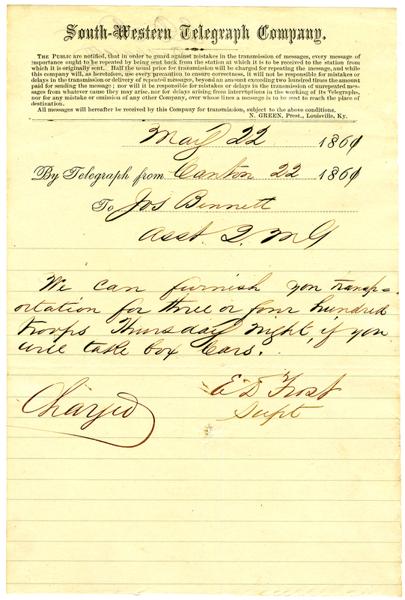 South-Western Telegraph Company.
THE PUBLIC are notified, that in order to guard against mistakes in the transmission of messages, every message of
importance ought to be repeated by being sent back from the station at which it is to be received to the station from
which it is originally sent. Half the usual price for transmission will be charged for repeating the message, and while
this company will, as heretofore, use every precaution to ensure correctness, it will not be responsible for mistakes or
delays in the transmission or delivery of repeated messages, beyond an amount exceeding two hundred times the amount
paid for sending the message; nor will it be responsible for mistakes or delays in the transmission of unrepeated messages
from whatever cause they may arise, nor for delays arising from interruptions in the working of its Telegraphs,
nor for any mistake or omission of any other Company, over whose lines a message is to be sent to reach the place of
destination.
All messages will hereafter be received by this Company for transmission, subject to the above conditions.
N. GREEN, Prest., Louisville, Ky.
May 22 1861
By Telegraph from Canton 22 1861
To Jos Bennett
Asst. Q. M G
We can furnish you transp-
ortation for three or four hundred
troops Thursday night, if you
will take box Cars.
Charged
E D Frost
Supt